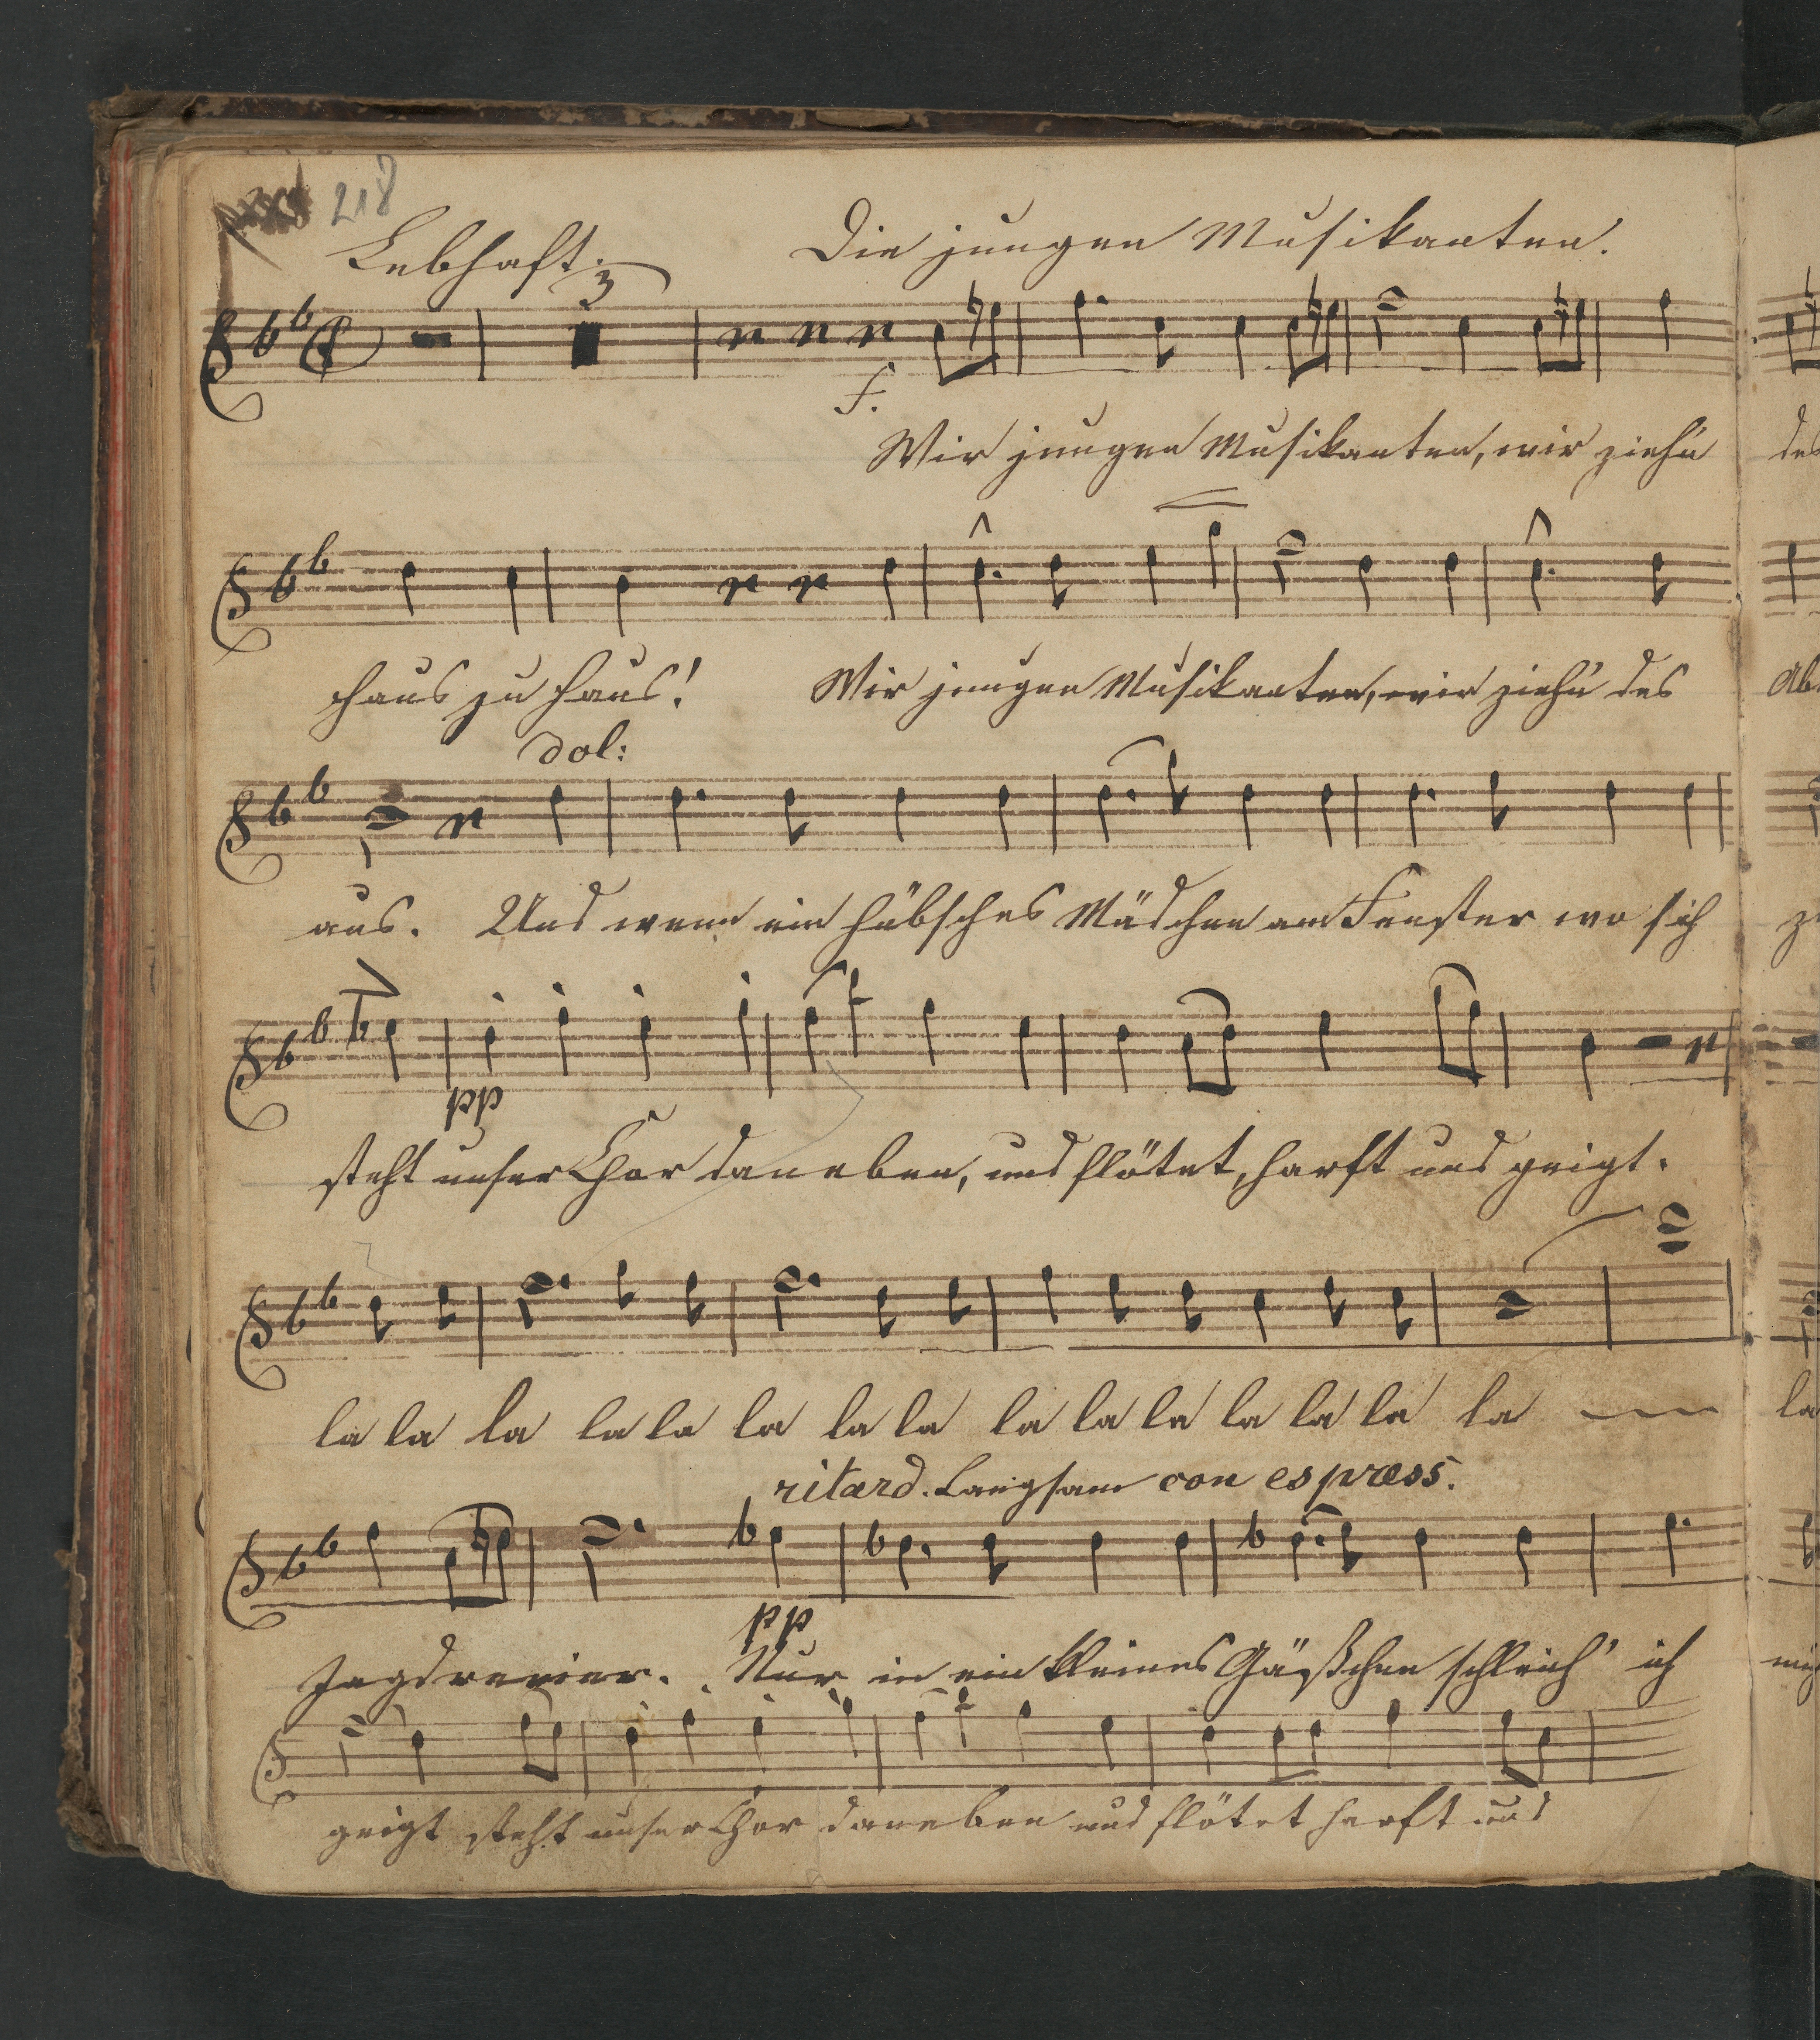 218
Lebhaft. Die jungen Musikanten.
3
f.
Wir jungen Musikanten, wir zieh'n des
Haus zu Haus! Wir jungen Musikanten, wir zieh'n des Ab
dol:
aus. Und wenn ein hübsches Mädchen am Fenster wo sich
pp
steht unser Chor daneben, und flötet, harft und geigt.
la la la la la la la la la la la la la la la la
ritard. Langsam con espress.
pp
Jagdrevier. Nur in ein kleines Gäßchen schleich' ich
geigt steht unser Chor daneben und flötet harft und